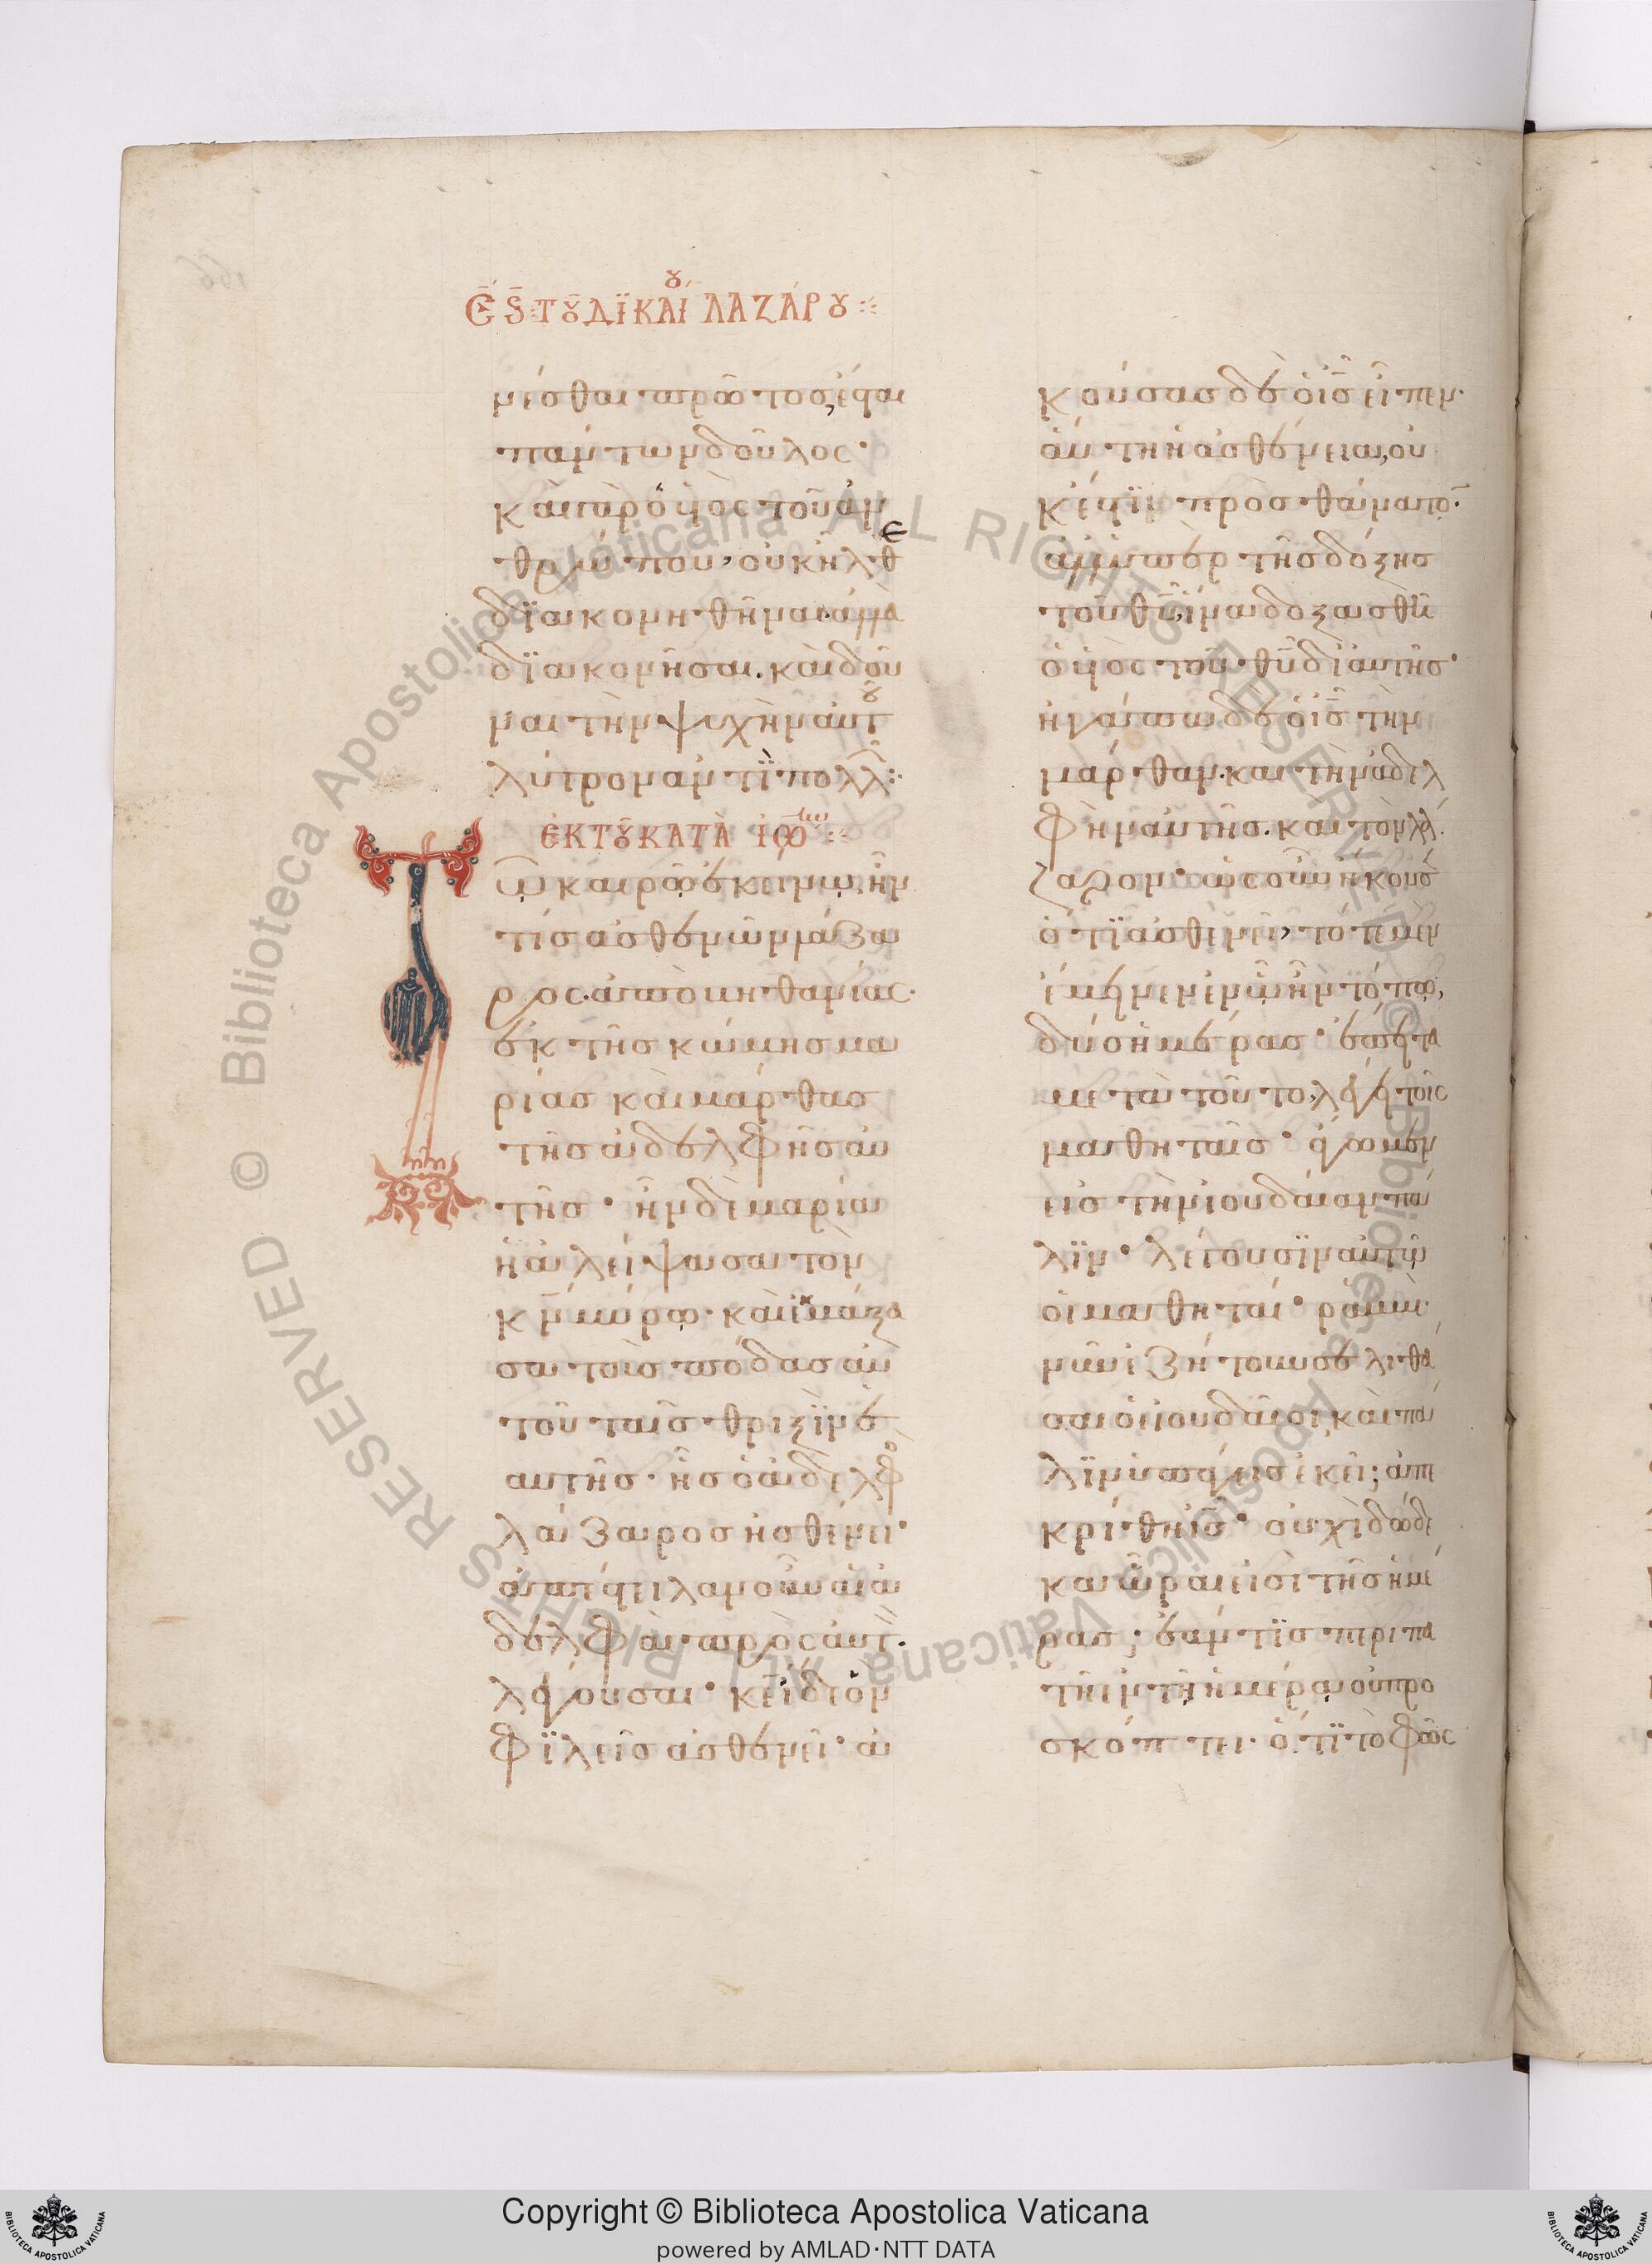 Ϛ̄ Ϛ̄ ΤΟΥ ΔΙΚΑΙΟΥ ΛΑΖΆΡΟΥ
νέσθαι πρῶτος, ἔσται
πάντων δοῦλος·
καὶ γὰρ ὁ υἱὸς τοῦ ἀν
θρώπου, οὐκ ἦλθε
διακονηθῆναι ἀλλὰ
διακονῆσαι. καὶ δοῦ
ναι τὴν ψυχὴν αὐτοῦ
λύτρον ἀντὶ πολλῶν:
ἐκ ΤΟΥ ΚΑΤᾺ ἸΩ
Τῷ καιρῷ ἐκείνῳ, ἦν
τίς ἀσθενῶν λάζα
ρος. ἀπὸ βηθανίας·
ἐκ τῆς κώμης μα
ρίας καὶ μάρθας
τῆς ἀδελφῆς αὐ
τῆς· ἦν δὲ μαρία
ἡ ἀλείψασα τὸν
κ̄ν μύρῳ· καὶ ἐκμάξα
σα τοὺς πόδας αὐ
τοῦ ταῖς θριξὶν ἑ
αυτῆς· ἧς ὁ ἀδελφὸς
λάζαρος ἠσθένει·
ἀπέστειλαν οὖν αἱ ἀ
δελφαὶ πρὸς αὐτὸν.
λέγουσαι· κ̄ε ἴδε ὃν
φιλεῖς ἀσθενεῖ· ἀ
κούσας δὲ ὁ ις̄ εἶπεν·
αὕτη ἡ ἀσθένεια, οὐ
κ ἔστιν πρὸς θάνατον·
ἀλλ' ὑπὲρ τῆς δόξης
τοῦ θ̄υ, ἵνα δοξασθῆ
ὁ υἱὸς τοῦ θ̄υ δι' αὐτῆς·
ἠγάπα δὲ ὁ ις̄ τὴν
μάρθαν. καὶ τὴν ἀδελ
φὴν αὐτῆς. καὶ τὸν λά
ζαρον· ὡς οὖν ἤκουσεν
ὅτι ἀσθενεῖ, τότε μὲν
ἔμεινεν ἐν ᾧ ἦν τόπῳ,
δύο ἡμέρας· ἔπειτα
μετὰ τοῦτο, λέγει τοῖς
μαθηταῖς· ἄγωμεν
εἰς τὴν ἰουδαίαν πά
λιν· λέγουσιν αὐτῷ
οἱ μαθηταί· ῥαββὶ·
νῦν ἐζήτουν σε λιθά
σαι οἱ ἰουδαῖοι, καὶ πά
λιν ὑπάγεις ἐκεῖ; ἀπε
κρίθη ις̄· οὐχὶ δώδε
κα ὧραι εἰσὶ τῆς ἡμέ
ρας; ἐάν τις περιπα
τῆ ἐν τῆ ἡμέρᾳ οὐ προ
σκόπτει. ὅτι τὸ φῶς
Copyright © Biblioteca Apostolica Vaticana
powered by AMLAD·NTT DATA